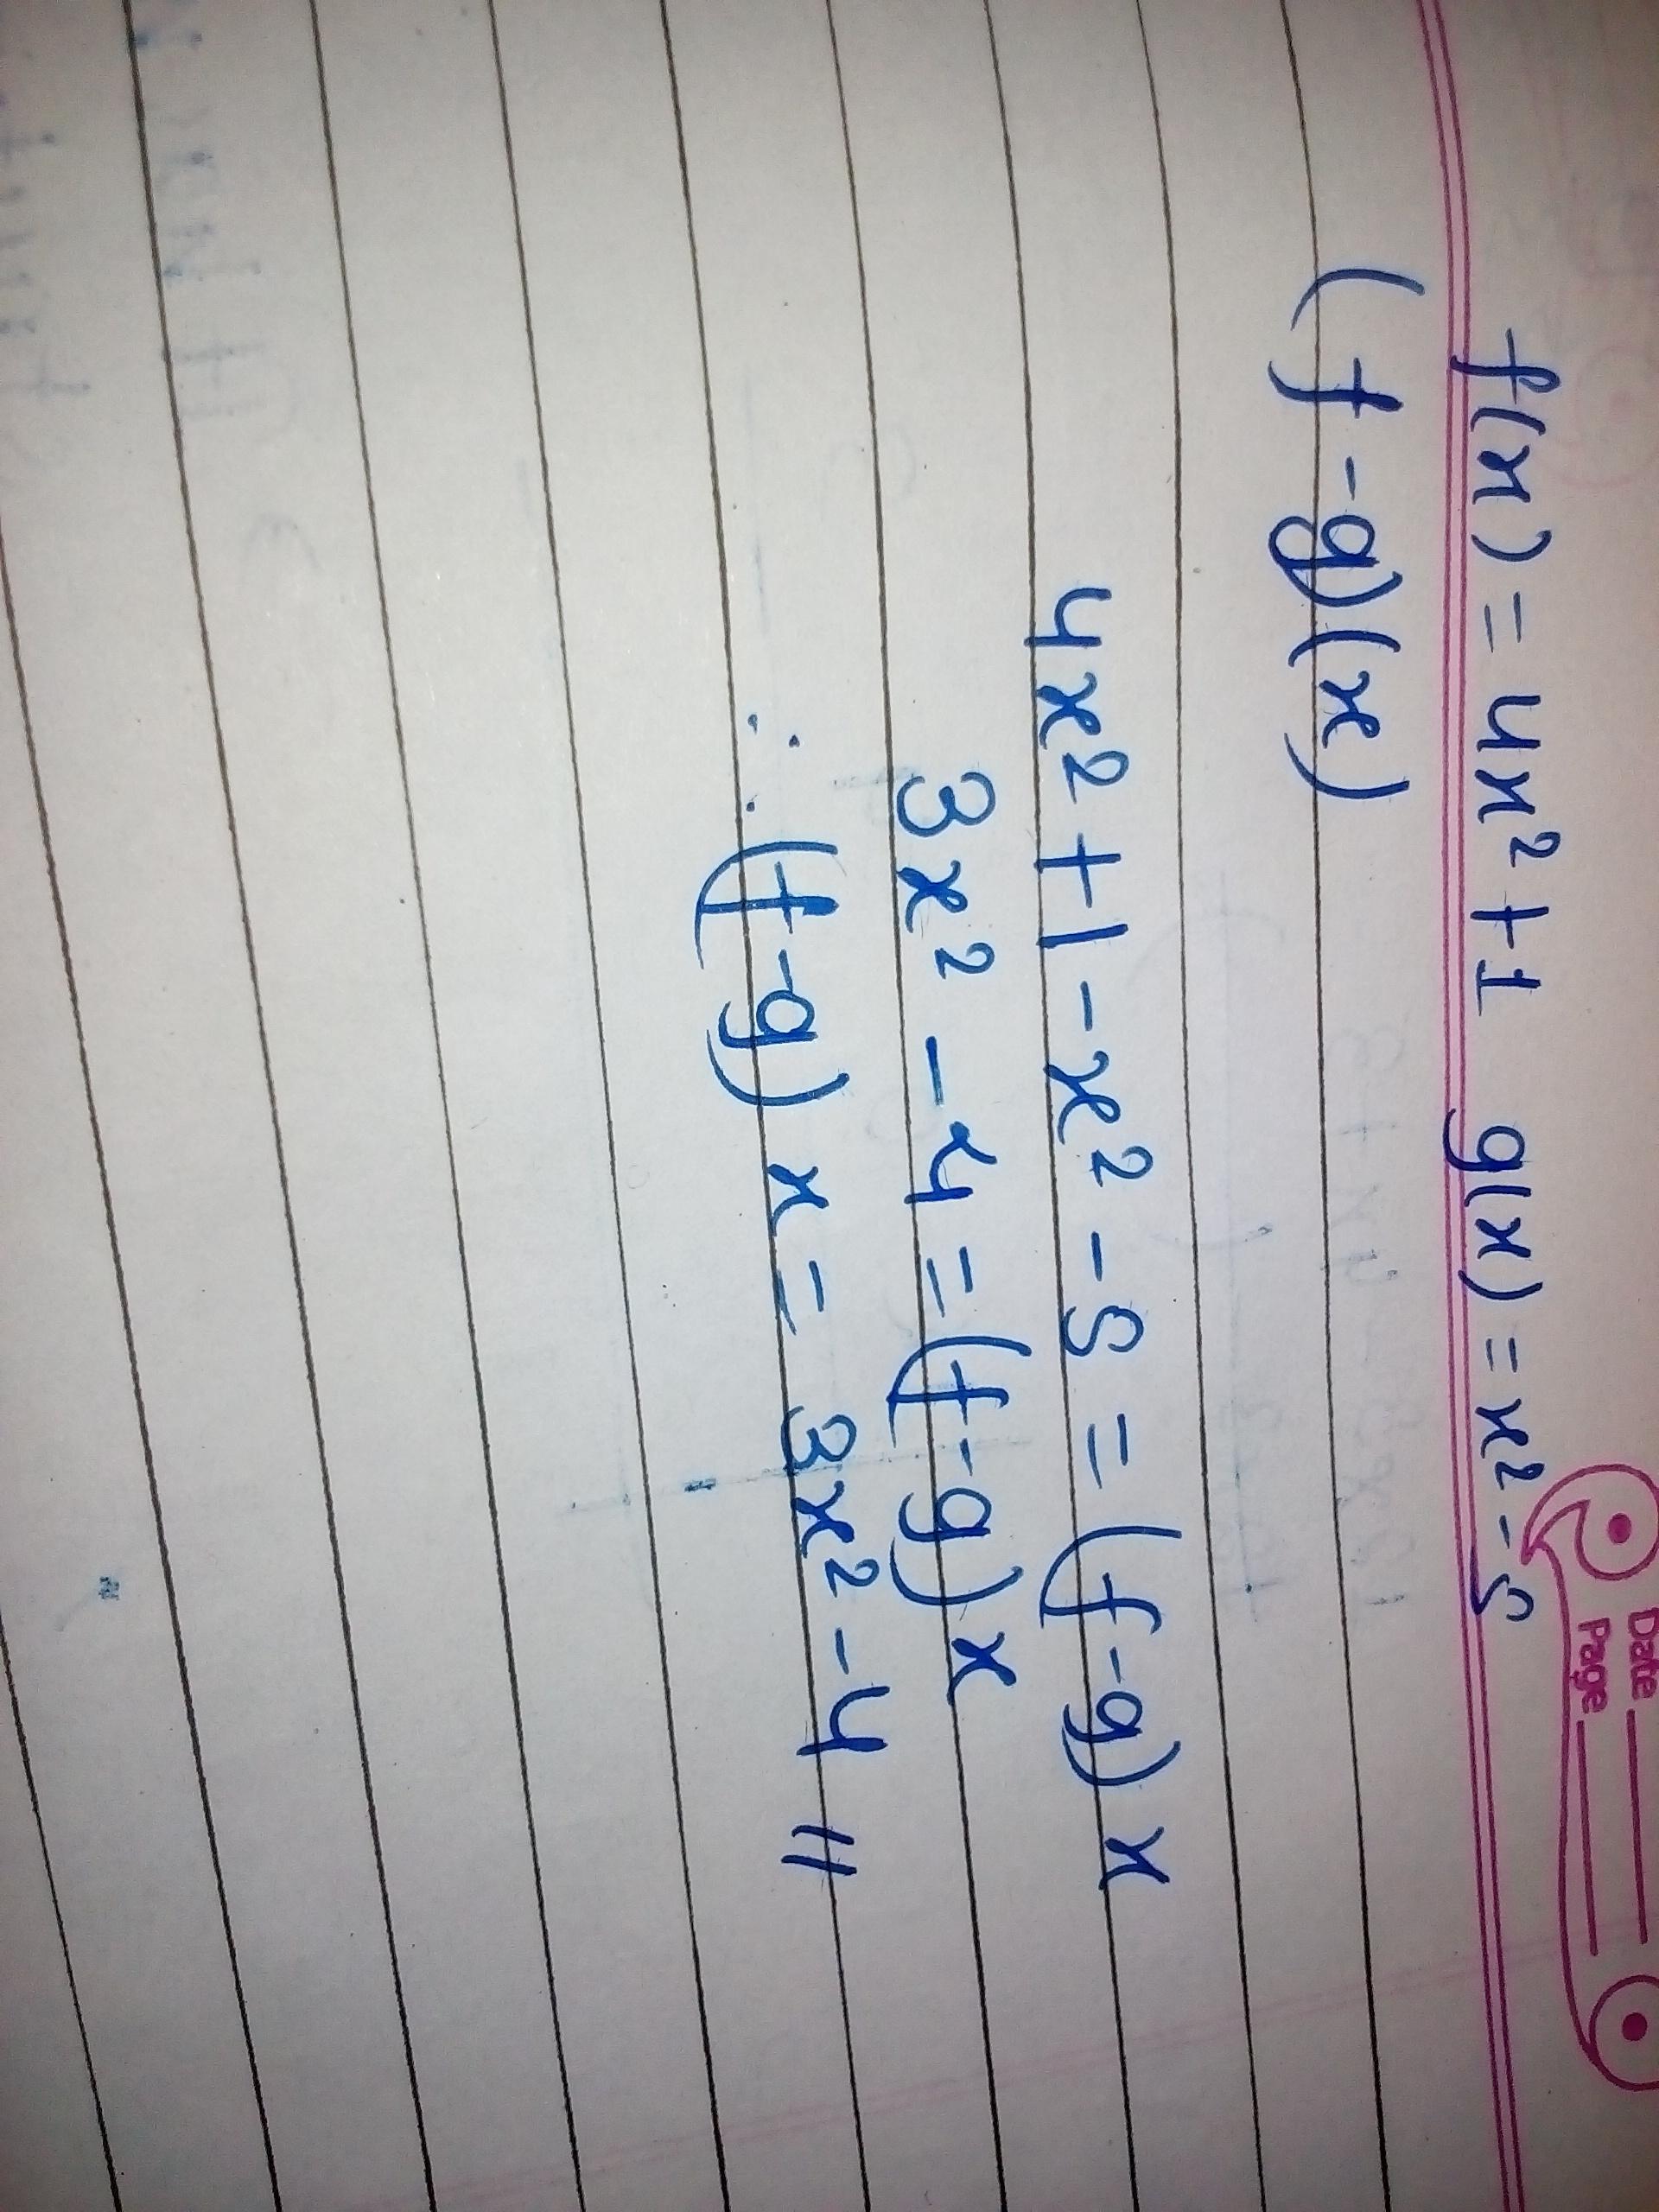 Date
Page
f(x) = 4x² + 1 g(x) = x² - 5
(f - g)(x)
4x² + 1 - x² - 5 = (f - g) x
3x² - 4 = (f - g) x
∴ (f - g) x = 3x² - 4 //